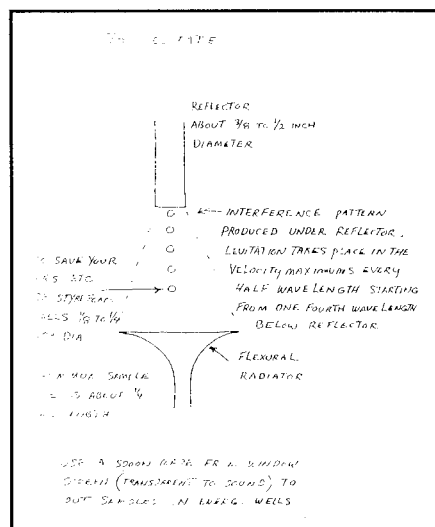 REFLECTOR
ABOUT 3/8 TO 1/2 INCH
DIAMETER
INTERFERENCE PATTERN
PRODUCED UNDER REFLECTOR.
LEVITATION TAKES PLACE IN THE
VELOCITY MAXIMUMS EVERY
HALF WAVE LENGTH STARTING
FROM ONE FOURTH WAVE LENGTH
BELOW REFLECTOR
SAVE YOUR
ETC
1/8 TO 1/4
DIA
FLEXURAL
RADIATOR
SAMPLE
IS ABOUT 1/4
USE A SPOON MADE FROM WINDOW
SCREEN (TRANSPARENT TO SOUND) TO
SAMPLES IN ENERGY WELLS